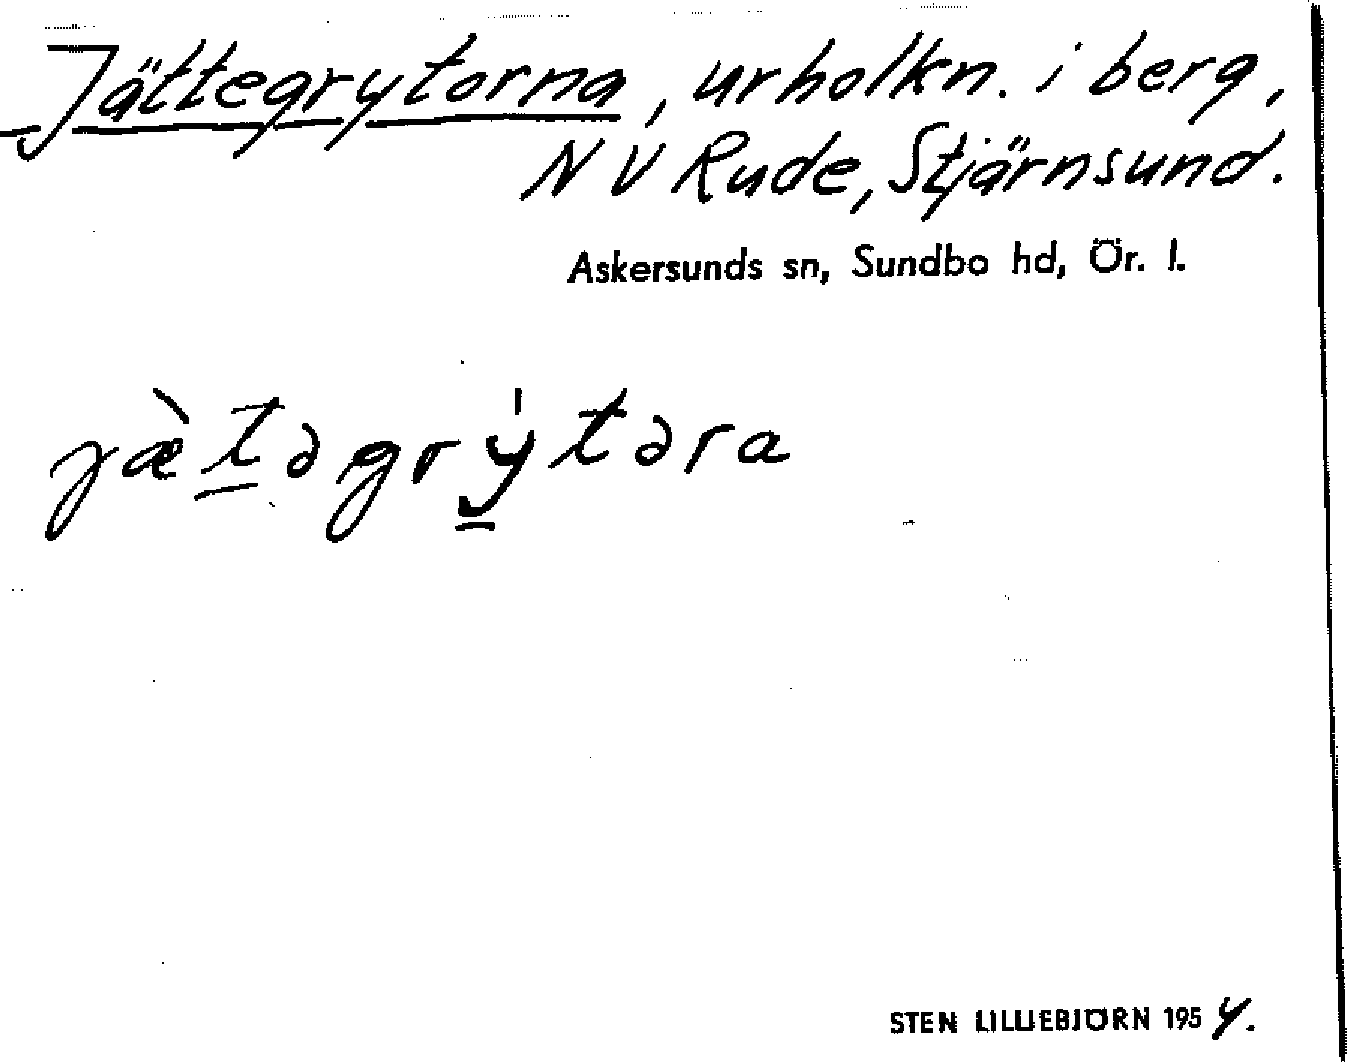 Jättegrytorna, urholkn. i berg,
N V Rude, Stjärnsund.
Askersunds sn, Sundbo hd, Ör. l.
jæ̀təgrýtəra
STEN LILLIEBJÖRN 1954.